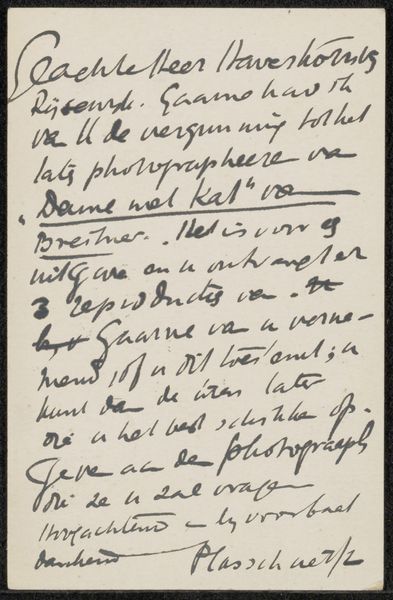 Geachte Heer Haverkorn v
Rijsewijk. Gaarne had ik
va U de vergunning tot het
late photographeere va
"Dame met Kat" va
Breitner. Het is voor
uitgave en u ontvangt er
3 reproducties van.
Gaarne van u verne-
mend, of u dit toestemt; u
kunt dan de uren later
die u het best schikke op-
geve aan de photograaph
die ze u zal vrage
Hoogachtend en bij voorbaat
dankend Plasschaert